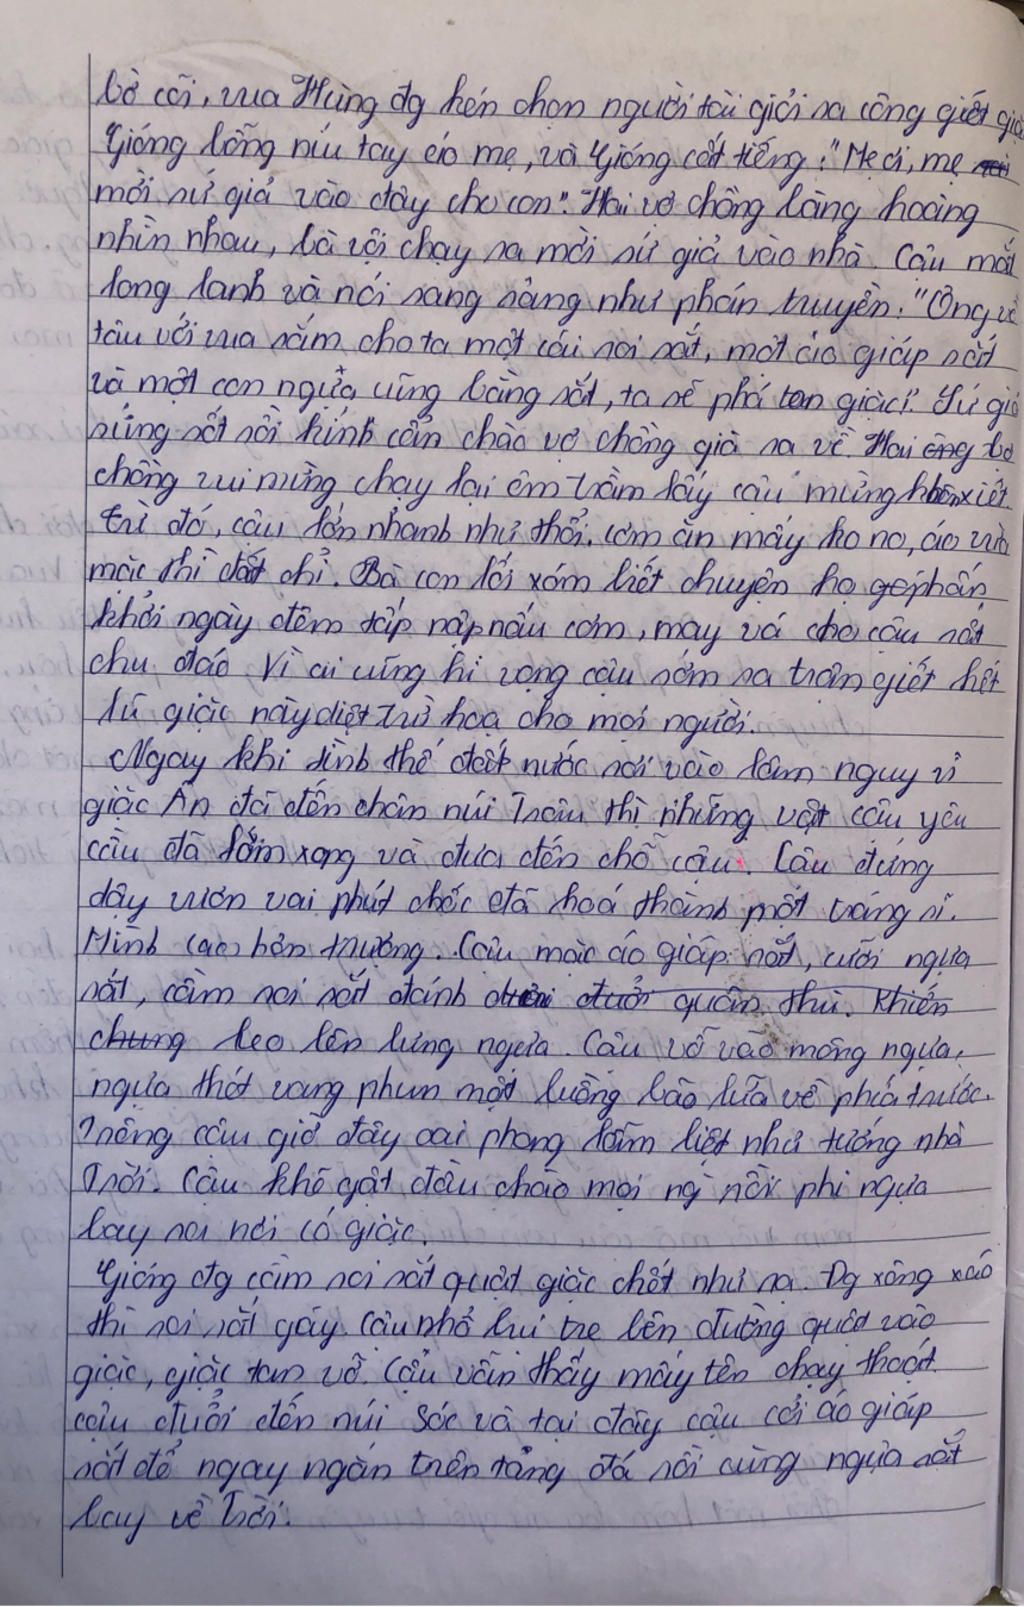 bờ cõi, vua Hùng đg kén chọn người tài giỏi ra công giết giặc
Gióng bỗng níu tay áo mẹ, và Gióng cất tiếng: "Mẹ ơi, mẹ
mời sứ giả vào đây cho con". Hai vợ chồng bàng hoàng
nhìn nhau, bà vội chạy ra mời sứ giả vào nhà. Cậu mắt
long lanh và nói sang sảng như phán truyền: "Ông về
tâu với vua sắm cho ta một cái roi sắt, một áo giáp sắt
và một con ngựa cũng bằng sắt, ta sẽ phá tan giặc!". Sứ giả
sửng sốt rồi kính cẩn chào vợ chồng già ra về. Hai ông bà
chồng vui mừng chạy lại ôm trầm lấy cậu mừng khôn xiết.
Từ đó, cậu lớn nhanh như thổi. cơm ăn mấy ko no, áo vừa
mặc thì đất chỉ. Bà con lối xóm biết chuyện họ góp phấn
khởi ngày đêm tấp nập nấu cơm, may vá cho cậu rất
chu đáo vì ai cũng hi vọng cậu sớm ra trận giết hết
lũ giặc này diệt trừ hoạ cho mọi người.
Ngay khi tình thế đất nước rơi vào lâm nguy vì
giặc Ân đã đến chân núi Trâu thì những vật cậu yêu
cầu đã làm xong và đưa đến chỗ cậu. Cậu đứng
dậy vươn vai phút chốc đã hoá thành một tráng sĩ.
Mình cao hơn trượng. Cậu mặc áo giáp sắt, cưỡi ngựa
sắt, cầm roi sắt đánh đuổi quân thù. khiến
chung leo lên lưng ngựa. Cậu vỗ vào mông ngựa,
ngựa thét vang phun một luồng bão lửa về phía trước.
Trông cậu giờ đây oai phong lẫm liệt như tướng nhà
Trời. Cậu khẽ gật đầu chào mọi ng` rồi phi ngựa
bay ra nơi có giặc.
Gióng đg cầm roi sắt quật giặc chết như rạ. Đg xông xáo
thì roi sắt gãy. Cậu nhổ bụi tre bên đường quật vào
giặc, giặc tan vỡ. Cậu vẫn thấy mấy tên chạy thoát
cậu đuổi đến núi Sóc và tại đây cậu cởi áo giáp
sắt để ngay ngắn trên tảng đá rồi cùng ngựa sắt
bay về trời.